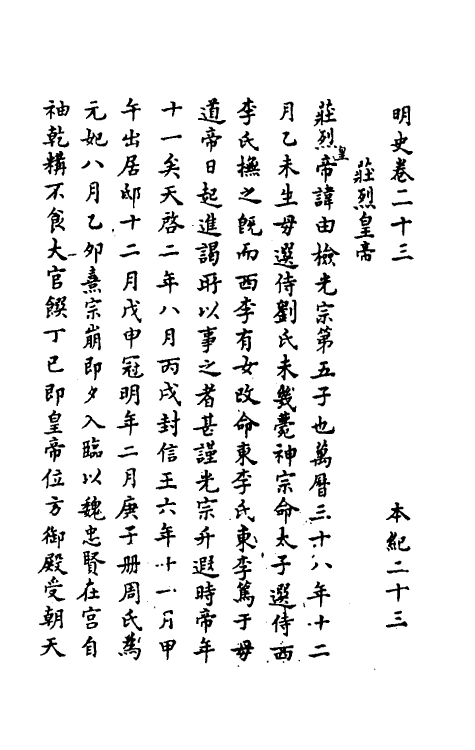 明史卷二十三 本紀二十三
莊烈皇帝
莊烈皇帝諱由檢光宗第五子也萬曆三十八年十二
月乙未生母選侍劉氏未幾薨神宗命太子選侍西
李氏撫之既而西李有女改命東李氏東李篤于母
道帝日起進謁所以事之者甚謹光宗升遐時帝年
十一矣天啓二年八月丙戌封信王六年十一月甲
午出居邸十二月戊申冠明年二月庚子册周氏為
元妃八月乙卯熹宗崩即夕入臨以魏忠賢在宮自
袖乾糒不食大官饌丁巳即皇帝位方御殿受朝天